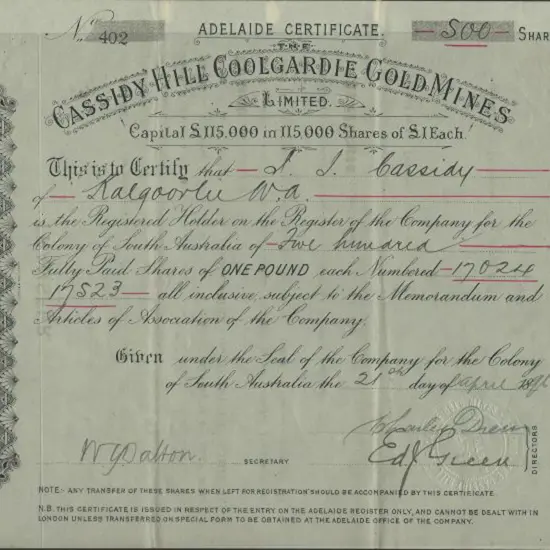 No. 402
ADELAIDE CERTIFICATE.
500 SHAR
THE
CASSIDY HILL COOLGARDIE GOLD MINES
LIMITED.
Capital £115,000 in 115,000 Shares of £1 Each.
This is to Certify that J. J. Cassidy
of Kalgoorlie W.A.
is the Registered Holder on the Register of the Company for the
Colony of South Australia of Five hundred
Fully Paid Shares of ONE POUND each Numbered 17024
17523 all inclusive, subject to the Memorandum and
Articles of Association of the Company.
Given under the Seal of the Company for the Colony
of South Australia the 21st day of April 189
W G Dalton.
SECRETARY
Drew
Ed J Green
DIRECTORS
NOTE:- ANY TRANSFER OF THESE SHARES WHEN LEFT FOR REGISTRATION SHOULD BE ACCOMPANIED BY THIS CERTIFICATE.
N.B. THIS CERTIFICATE IS ISSUED IN RESPECT OF THE ENTRY ON THE ADELAIDE REGISTER ONLY, AND CANNOT BE DEALT WITH IN
LONDON UNLESS TRANSFERRED ON SPECIAL FORM TO BE OBTAINED AT THE ADELAIDE OFFICE OF THE COMPANY.